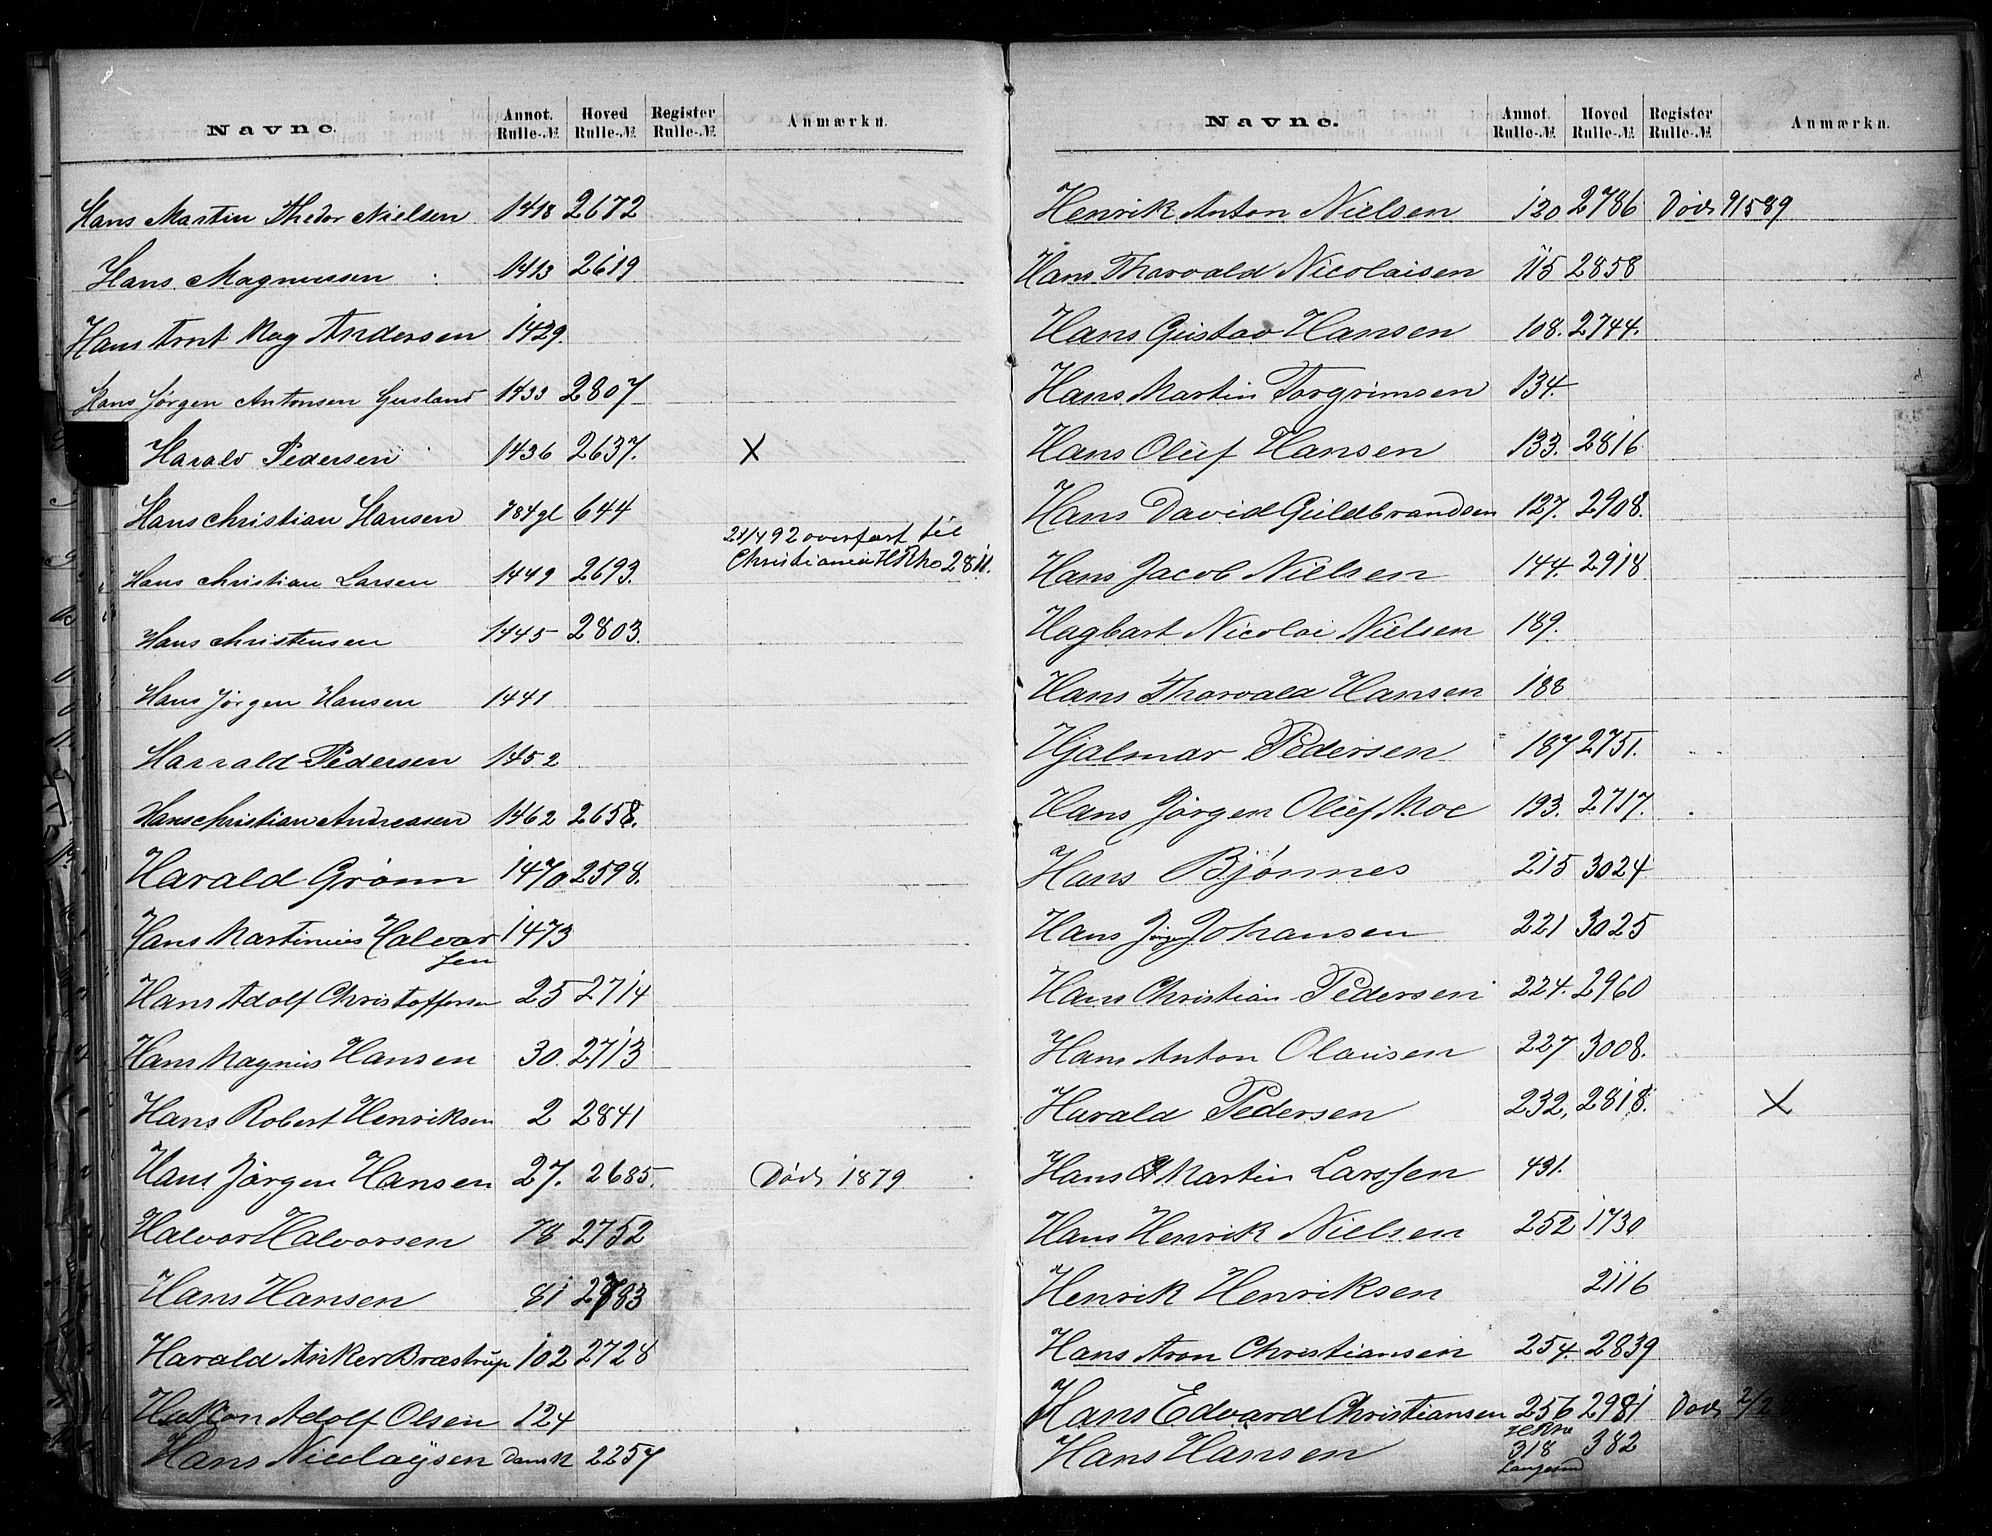 Navne. Annot. Rulle-№ Hoved Rulle-№ Register Rulle-№ Anmærkn.
Hans Martin Thedor Nielsen 1418 2672
Hans Magnussen 1413 2619
Hans Arnt Mag Andersen 1429.
Hans Jørgen Antonsen Gusland 1433 2807
Harald Pedersen 1436 2637. X
Hans Christian Hansen 784 gl 644
21/4 92 overført til
Hans Christian Larsen 1449 2693. Christiania H R No 2811.
Hans Christensen 1445 2803.
Hans Jørgen Hansen 1441
Harrald Pedersen 1452
Hans Christian Andreasen 1462 2658.
Harald Grønn 1470 2598.
Hans Martinius Halvor 1473
sen
Hans Adolf Christoffersen 25 2714
Hans Magnus Hansen 30. 2713
Hans Robert Henriksen 2 2841
Hans Jørgen Hansen 27. 2685. Død 1879
Halvor Halvorsen 78 2752
Hans Hansen 81 2783
Harald Anker Bræstrup 102 2728
Hakon Adolf Olsen 124
Hans Nicolaysen Dansk 2257
Navne. Annot. Rulle-№ Hoved Rulle-№ Register Rulle-№ Anmærkn.
Henrik Anton Nielsen 120 2786 Død 9/5 89
Hans Thorvald Nicolaisen 115 2858
Hans Gustav Hansen 108. 2744.
Hans Martin Torgrimsen 134.
Hans Oluf Hansen 133. 2816
Hans David Guldbrandsen 127. 2908.
Hans Jacob Nielsen 144. 2918
Hagbart Nicolai Nielsen 189.
Hans Thorvald Hansen 188
Hjalmar Pedersen 187 2751.
Hans Jørgen Oluf Moe 193. 2717.
Hans Bjønnes 215 3024
Hans Jørgen Johansen 221 3025
Hans Christian Pedersen 224. 2960
Hans Anton Olausen 227 3008.
Harald Pedersen 232, 2818. X
Hans Martin Larssen 431.
Hans Henrik Nielsen 252 1730
Henrik Henriksen 2116
Hans Aron Christiansen 254. 2839
Hans Edvard Christiansen 256 2981 Død 2/2
Hans Hansen 318 382
Langesund